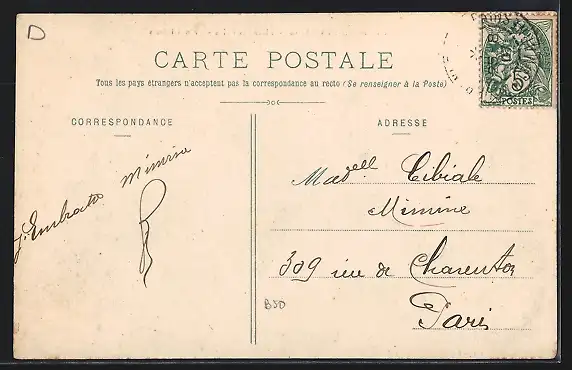 D
CARTE POSTALE
Tous les pays étrangers n'acceptent pas la correspondance au recto (Se renseigner à la Poste)
CORRESPONDANCE
ADRESSE
J. Embrato Mimria
Madell Cibiale
Mimine
309 rue de Charenton
Paris
BJD
5c
POSTES